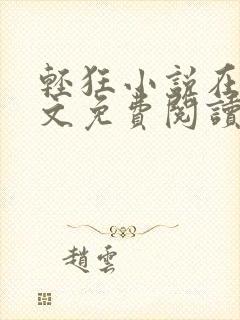 輕狂小說在
文免費閱讀
趙雲